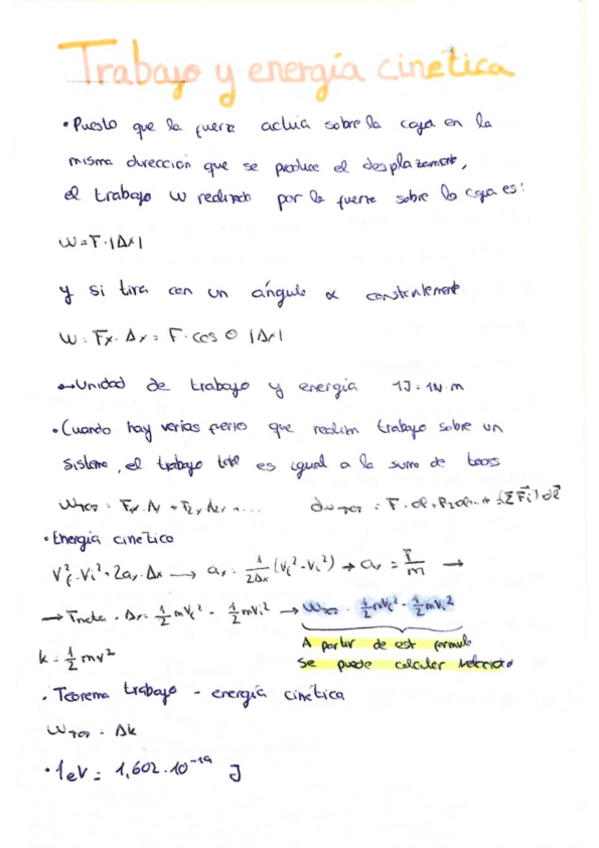 Trabajo y energía cinética
• Puesto que la fuerza actúa sobre la caja en la
misma dirección que se produce el desplazamiento,
el trabajo W realizado por la fuerza sobre la caja es:
W = F · |Δx|
y si tira con un ángulo α constantemente
W = Fx · Δx = F · cos θ |Δx|
→ Unidad de trabajo y energía 1J = 1N · m
• Cuando hay varias que realizan trabajo sobre un
sistema, el trabajo total es igual a la suma de
• Energía cinética
Vf² = Vi² + 2ax · Δx → ax = 1/2Δx (Vf² - Vi²) → ax = F/m →
→ Fneta · Δx = 1/2 mVf² - 1/2 mVi² → WTOT = 1/2 mVf² - 1/2 mVi²
A partir de est formula
se puede calcular
k = 1/2 mv²
· Teorema trabajo - energía cinética
WTOT = Δk
• 1eV = 1,602 · 10⁻¹⁹ J